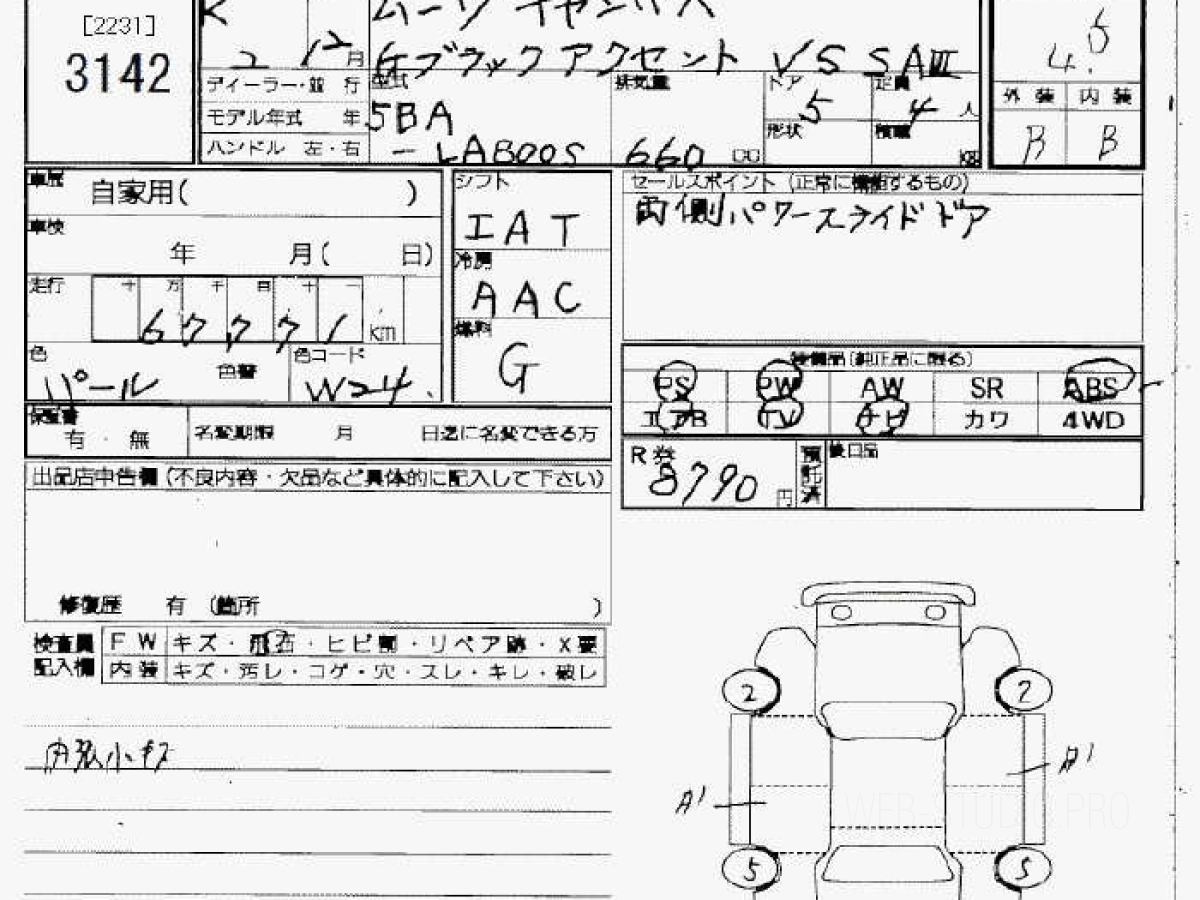 [2231]
3142
K 2 12月
ムーヴ キャンバス
Gブラックアクセント VS SAⅢ
4.5
ディーラー・並 行
モデル年式 年
ハンドル 左・右
型式
5BA
- LA800S
排気量
660 cc
ドア
5
定員
4 人
形状
積載
kg
外 装 内 装
B B
車歴
自家用( )
車検
年 月( 日)
走行
十 万 千 百 十 一
67771 km
色
パール
色替
色コード
W24.
シフト
IAT
冷房
AAC
燃料
G
セールスポイント (正常に機能するもの)
両側パワースライドドア
装備品(純正品に限る)
PS PW AW SR ABS
エアB TV ナビ カワ 4WD
保証書
有 ・ 無
名変期限 月 日迄に名変できる方
R券
8790 円
預託済
後日品
出品店申告欄(不良内容・欠品など具体的に記入して下さい)
修復歴 有 (箇所 )
検査員
記入欄
F W キズ・飛石・ヒビ割・リペア跡・X要
内装 キズ・汚レ・コゲ・穴・スレ・キレ・破レ
内張小キズ
2 7
A1
A1
5 5
WEB-STUDIO.PRO